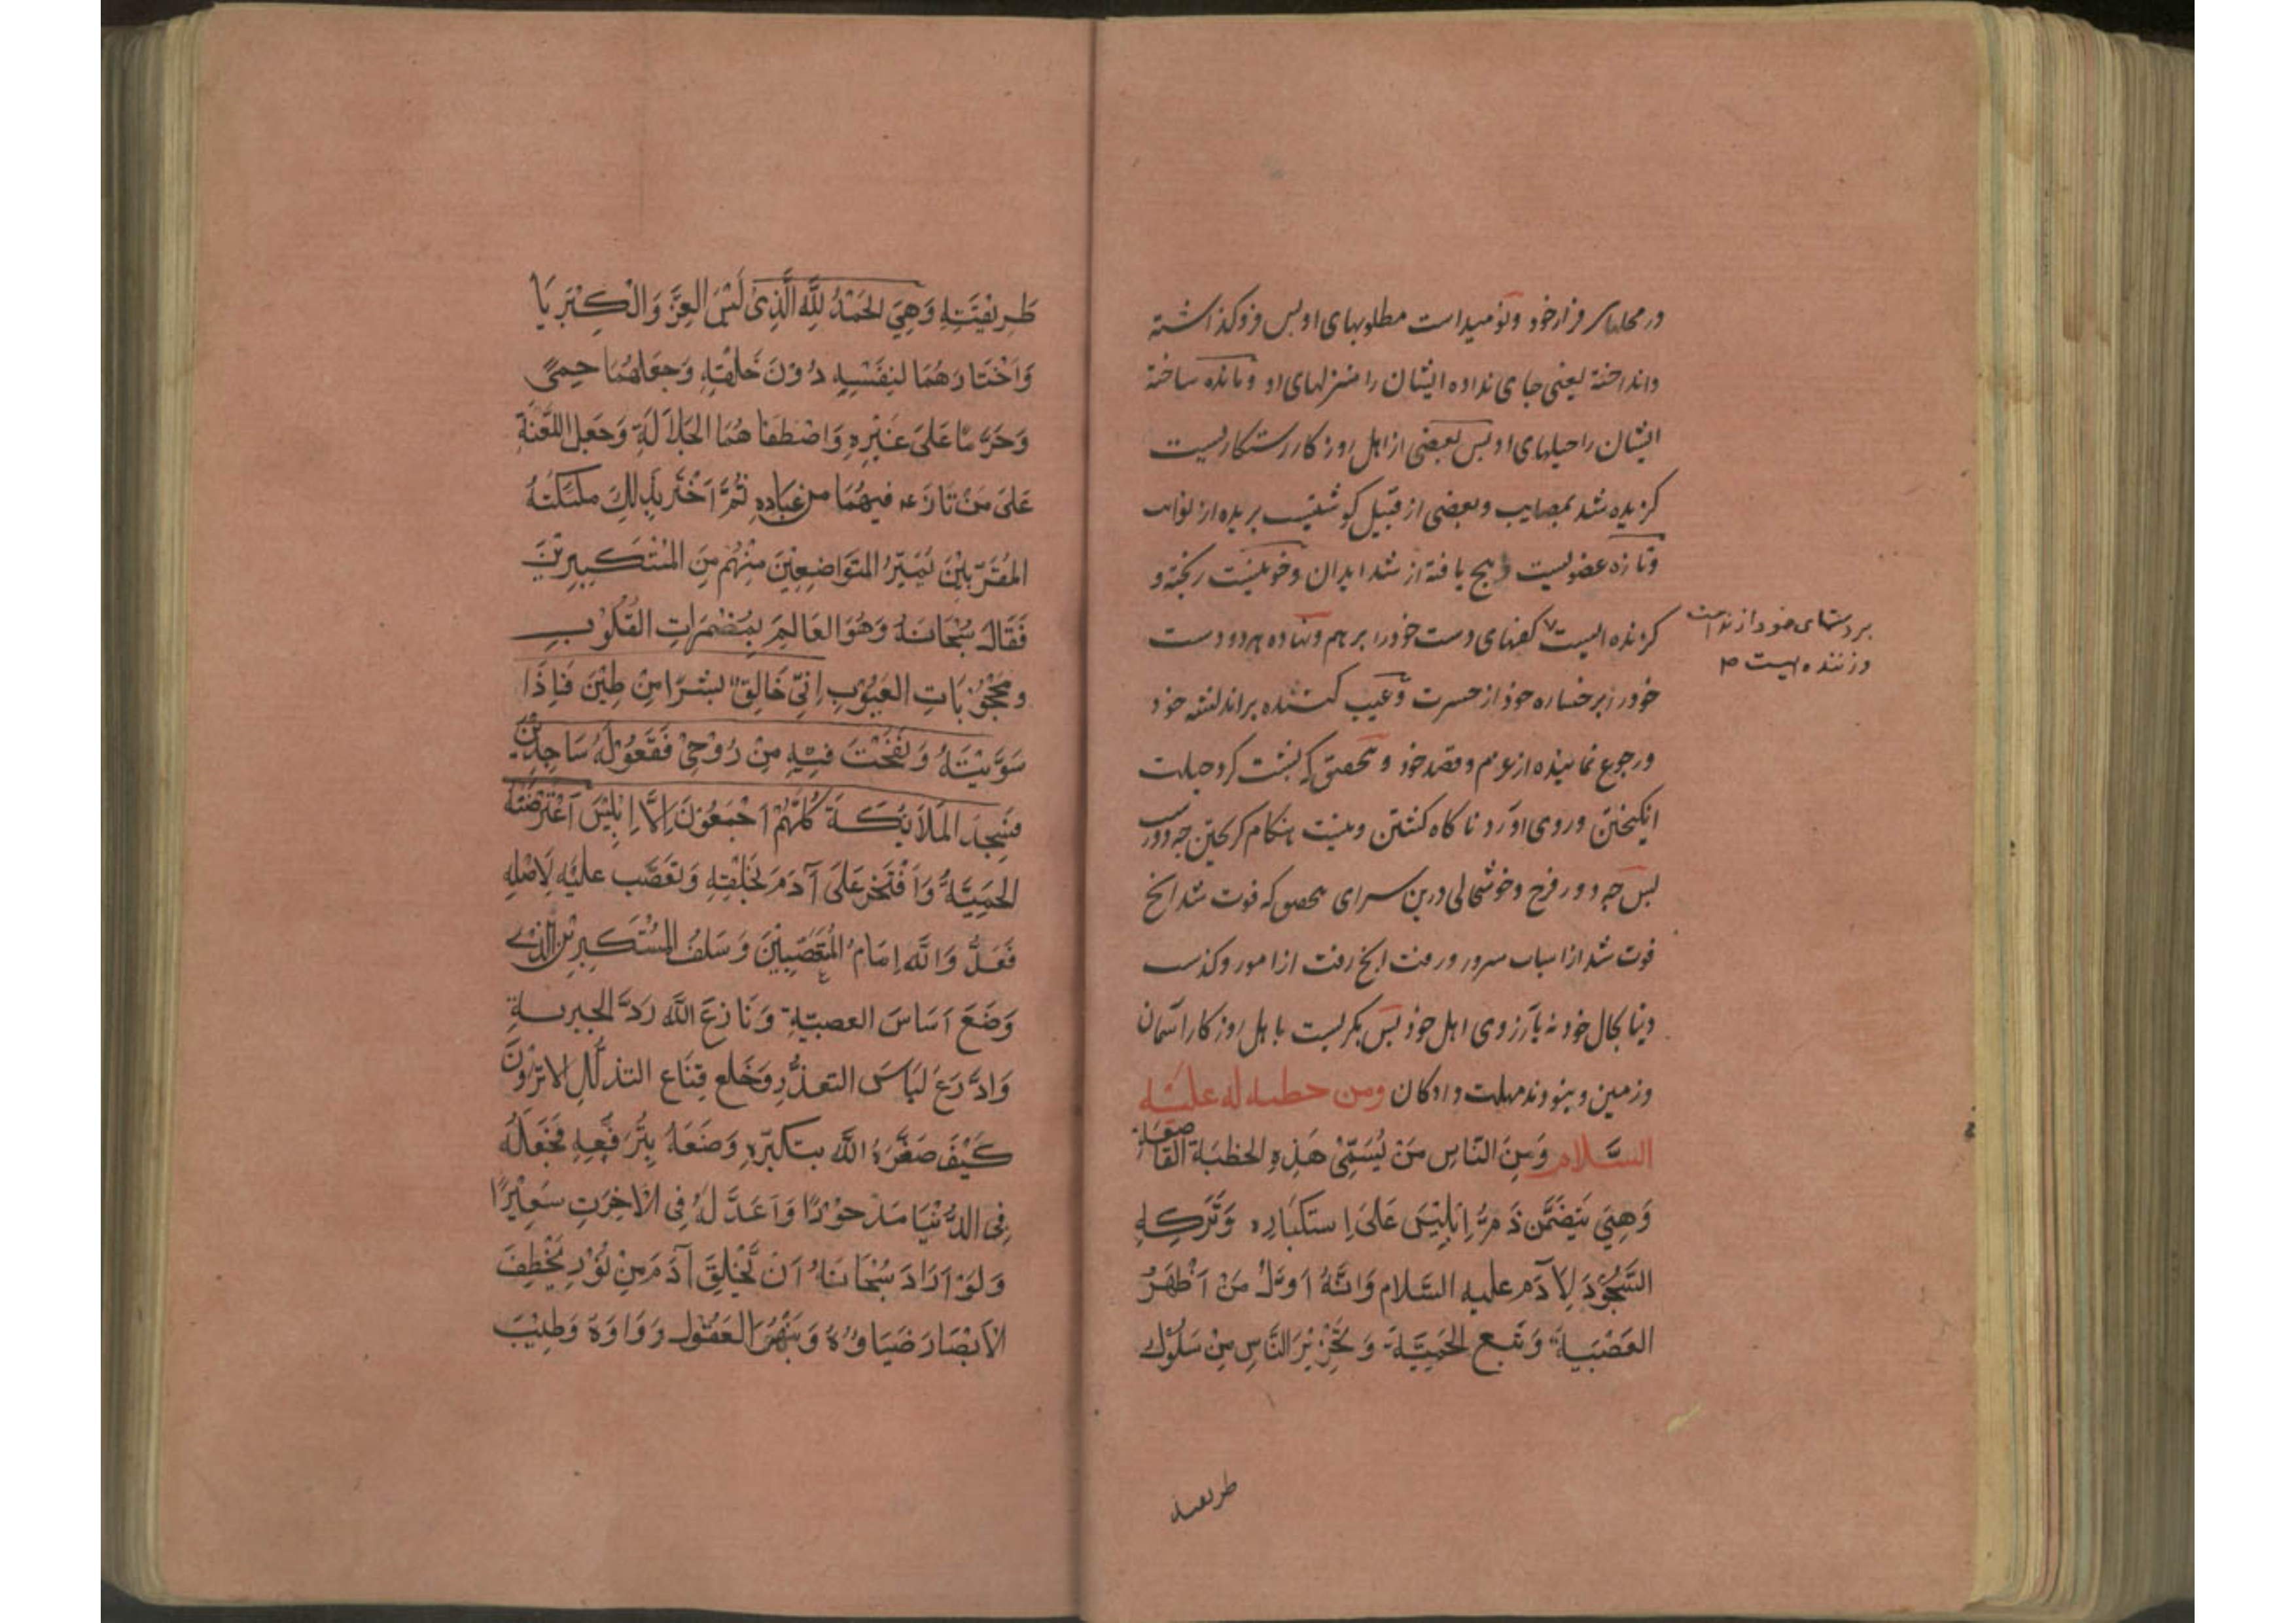 در محلهای فرار خود و نومیداست مطلوبهای او بس فرو گذاشته
وانداخته یعنی جای نداده ایشان را منزلهای او و مانده ساخته
ایشان را حیلهای او بس بعضی از اهل روزکار رستکاریست
کزیده شد بمصایب و بعضی از قبیل کوشتیست بریده از
و تازه عضویست یافته از شد ابدان و خونیست ریخته و
کزنده ایست کفهای دست خود را برهم و نهاده هر دو دست
بر دستهای خود از ندامت
و زننده هست
خود را بر خساره خود از حسرت و عیب کننده بر اندیشه خود
و رجوع نماینده از عزم و قصد خود و بتحقیق که پشت کرد حیلت
انکیختن و روی اورد ناکاه کشتن و نیست هنکام کریختن چه دور
بس چه دور فرح و خوشحالی درین سرای بتحقیق که فوت شد انچ
فوت شد از اسباب سرور و رفت انچ رفت از امور و کذشت
دنیا بحال خود نه بآرزوی اهل خود بس نکریست باهل روزکار آسمان
و زمین و نبودند مهلت دادکان ومن خطبه له علیه
السَّلام وَمِنَ النّاسِ مَنْ یُسَمّی هَذِهِ الخطبَة القاصعَة
وَهِیَ یَتَضَمَّن ذَمَّ اِبلِیْسَ عَلیَ اِستکبَارِه وَتَرکِهِ
السُّجُوْدَ لِاٰدَم علیه السَّلام وَانَّهُ اَوَّلُ مَنْ اَظْهَرَ
العَصَبِیَّة وَتَبِعَ الحَمِیَّةَ وَتَحْذِیْرَ النَّاسِ مِنْ سُلُوْكِ
طریقته
طَرِیْقَتِهِ وَهِیَ الحَمْدُ لِلَّهِ الَّذِیْ لَبِسَ العِزَّ وَالْکِبْرِیَا
وَاخْتَارَهُمَا لِنَفْسِهِ دُوْنَ خَلْقِهِ وَجَعَلَهُمَا حِمیً
وَحَرَمًا عَلیَ غَیْرِهِ وَاصْطَفَاهُمَا لِجَلَالَهِ وَجَعَلَ اللَّعْنَةَ
عَلیَ مَنْ نَازَعَه فِیهُمَا مِن عِبَادِهِ ثُمَّ اَخْتَبَر بِذٰلِكَ مَلٰئکَتَهُ
المُقَرَّبِیْنَ لِیَمِیْزَ المُتَوَاضِعِیْنَ مِنْهُمْ مِنَ المُسْتَکْبِرِیْنَ
فَقَالَ سُبْحَانَهُ وَهُوَ العَالِمُ بِمُضْمَرَاتِ القُلُوْبِ
ومَحْجُوْبَاتِ الغُیُوْبِ اِنِّیْ خَالِقٌ بَشَرًا مِنْ طِیْنٍ فَاِذَا
سَوَّیْتَهُ وَنَفَخْتَ فِیْهِ مِنْ رُوْحِیْ فَقَعُوْلَهُ سَاجِدِیْنَ
فَسَجَدَ المَلَائِکَةَ کُلُّهُمْ اَجْمَعُوْنَ اِلَّا اِبْلِیْسَ اَعْتَرَضَتْهُ
الحَمِیَّةُ وَاَفْتَخَرَ عَلیَ آدَمَ بِخَلْقِهِ وَتَعَصَّب عَلَیْهِ لِاَصْلِهِ
فَعَدُوُّ اللَّه اِمَامُ المُتَعَصِّبِیْنَ وَسَلَفُ المُسْتَکْبِرِیْنَ الَّذِیْ
وَضَعَ اَسَاسَ العصبیّةِ وَنَازَعَ اللَّه رَدَاءَ الجبریةِ
وَادَّرَعَ لِبَاسَ التعزُّزِ وَخَلع قِنَاع التذلُّلِ الاترَوْنَ
کَیْفَ صَغَّرَهُ اللَّه بتکبّرِهِ وَضَعَهُ بِتَرَفُّعِهِ فَجَعَلَهُ
فِی الدُّنْیَا مَدْحُوْرًا وَاَعَدَّ لَهُ فِی الْاٰخِرَتِ سَعِیْرًا
وَلَوْ اَرَادَ سُبْحَانَهُ اَنْ یَّخْلِقَ آدَمَ مِنْ نُوْرٍ یَخْطِفَ
الْاَبْصَارَ ضِیَاؤُهُ وَیَبْهُرُ العُقُوْلَ رَوَاوَهُ وَطِیْبَ